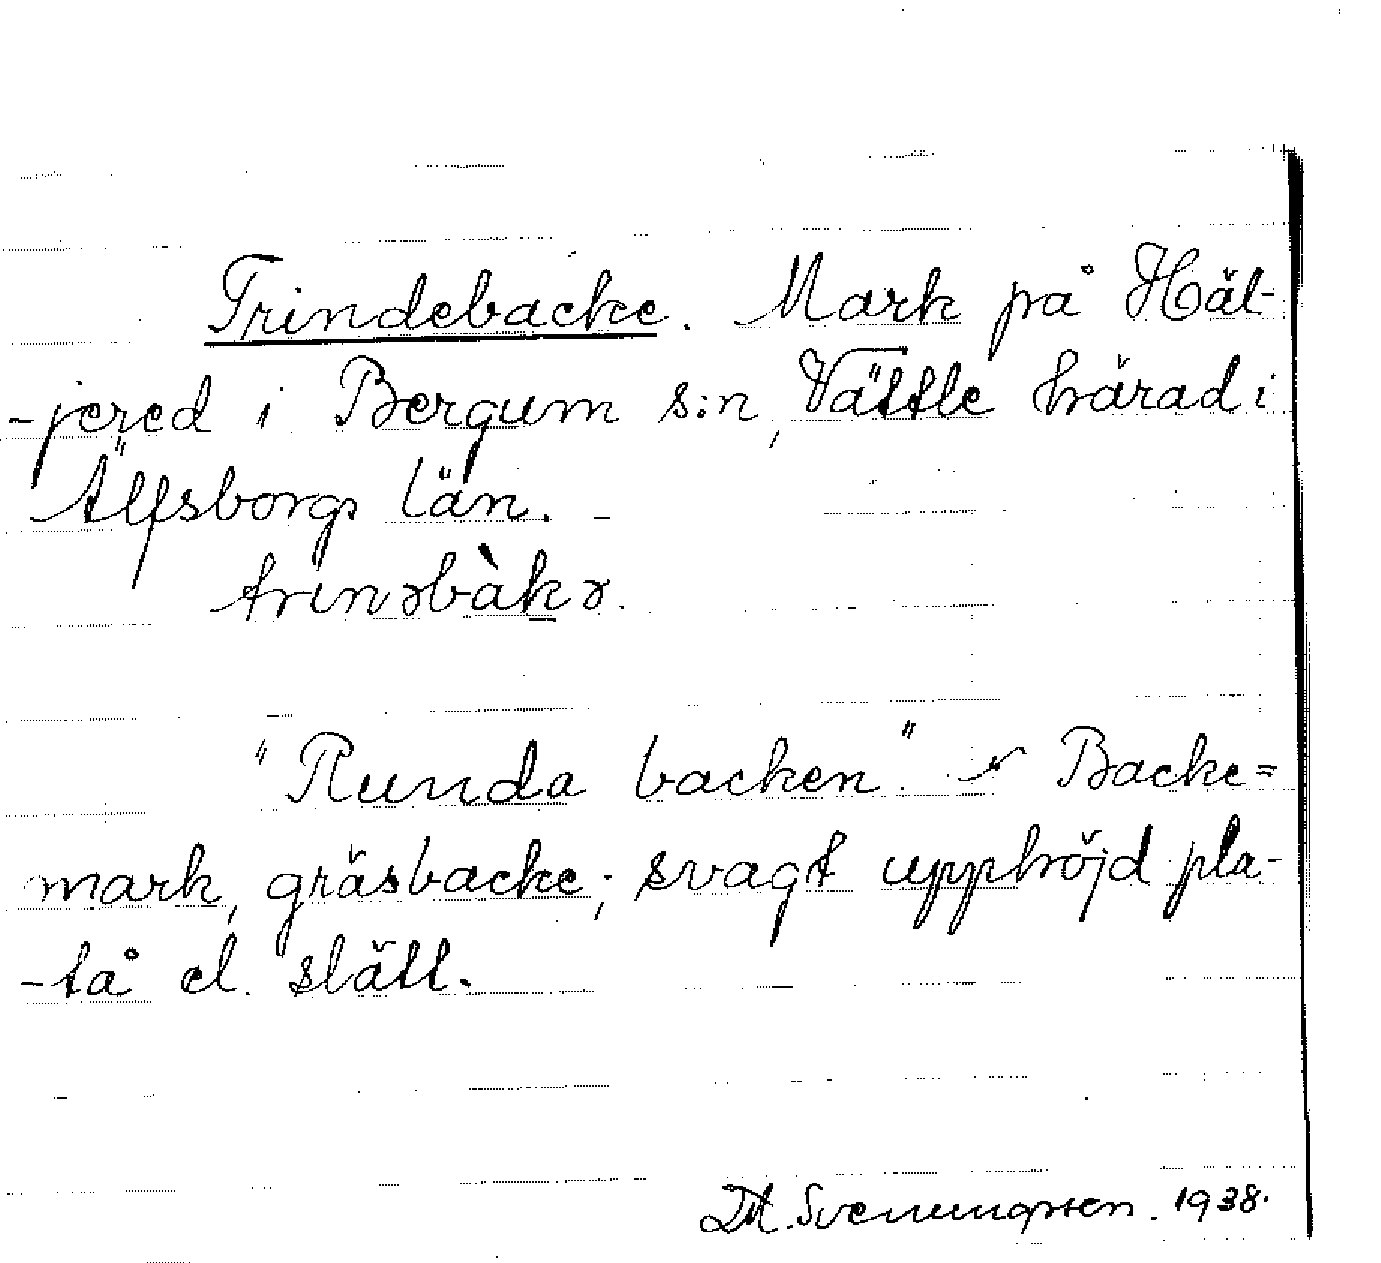 Trindebacke. Mark på Häl-
-jered i Bergum s:n, Vättle härad i
Älfsborgs län.
trinəbàkə.
"Runda backen." Backe=
mark, gräsbacke; svagt upphöjd pla-
-tå el. slätt.
Svenungsson. 1938.